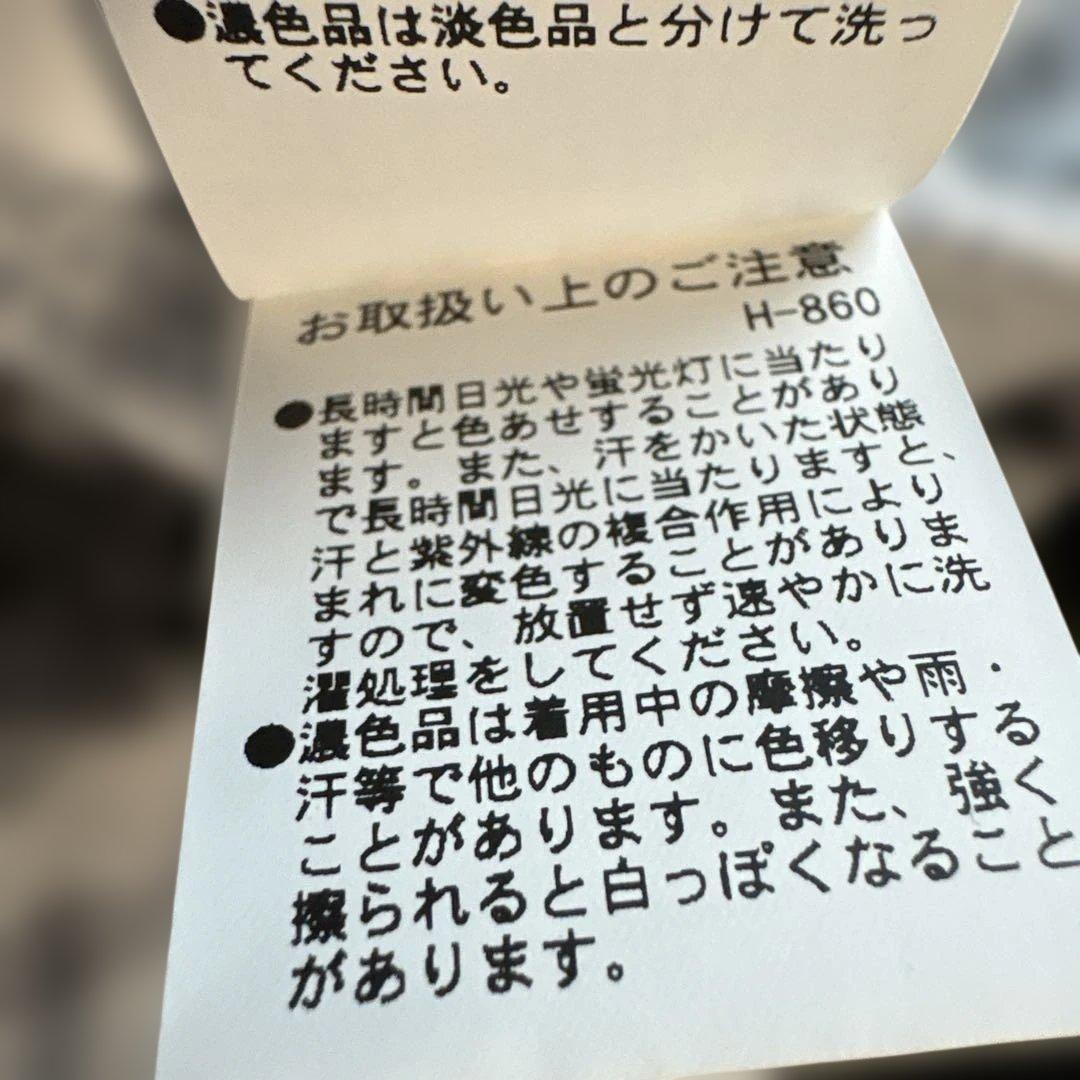 ●濃色品は淡色品と分けて洗っ
てください。
お取扱い上のご注意
H-860
●長時間日光や蛍光灯に当たり
ますと色あせすることがあり
ます。また、汗をかいた状態
で長時間日光に当たりますと、
汗と紫外線の複合作用により
まれに変色することがありま
すので、放置せず速やかに洗
濯処理をしてください。
●濃色品は着用中の摩擦や雨・
汗等で他のものに色移りする
ことがあります。また、強く
擦られると白っぽくなること
があります。